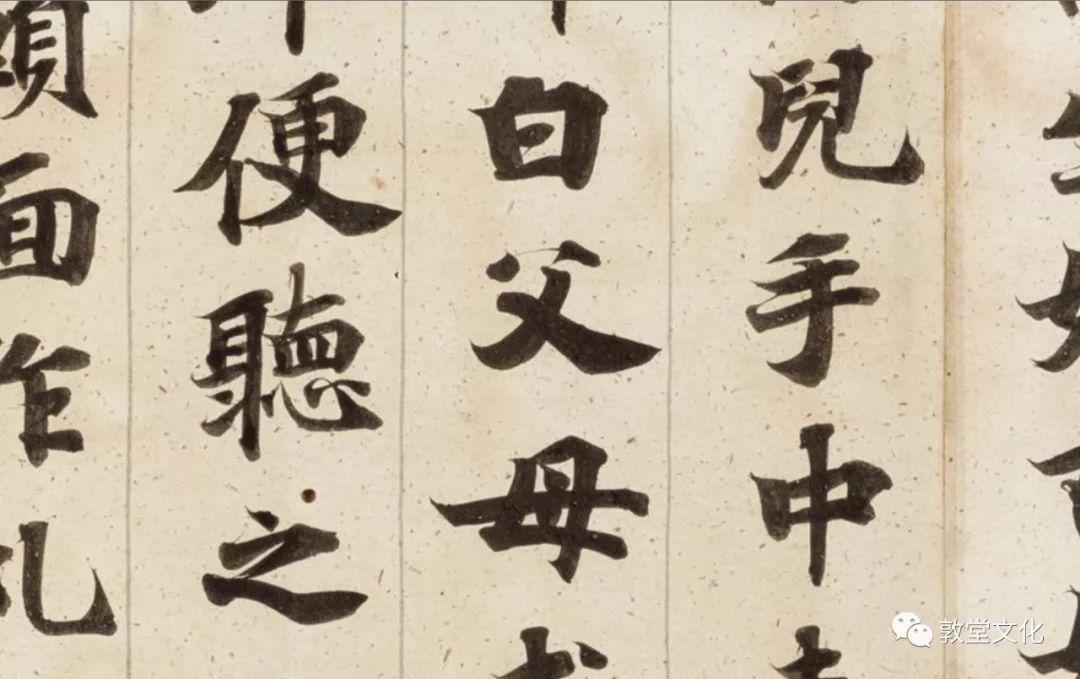 兒手中
白父母
便聽之
面作礼
敦堂文化